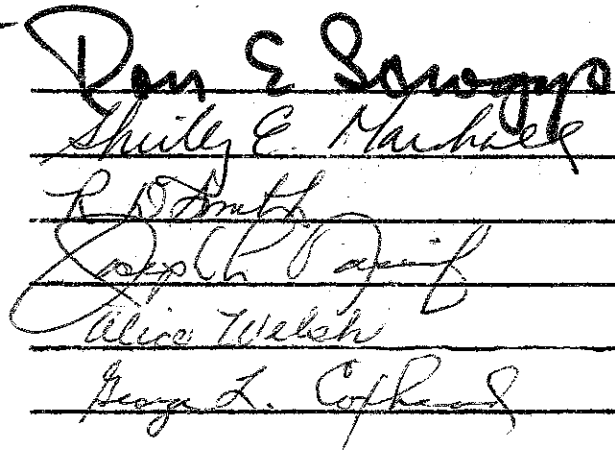 Don E Scroggs
Shirley E. Marshall
R D Smith
Joseph
Alice Welsh
George L.